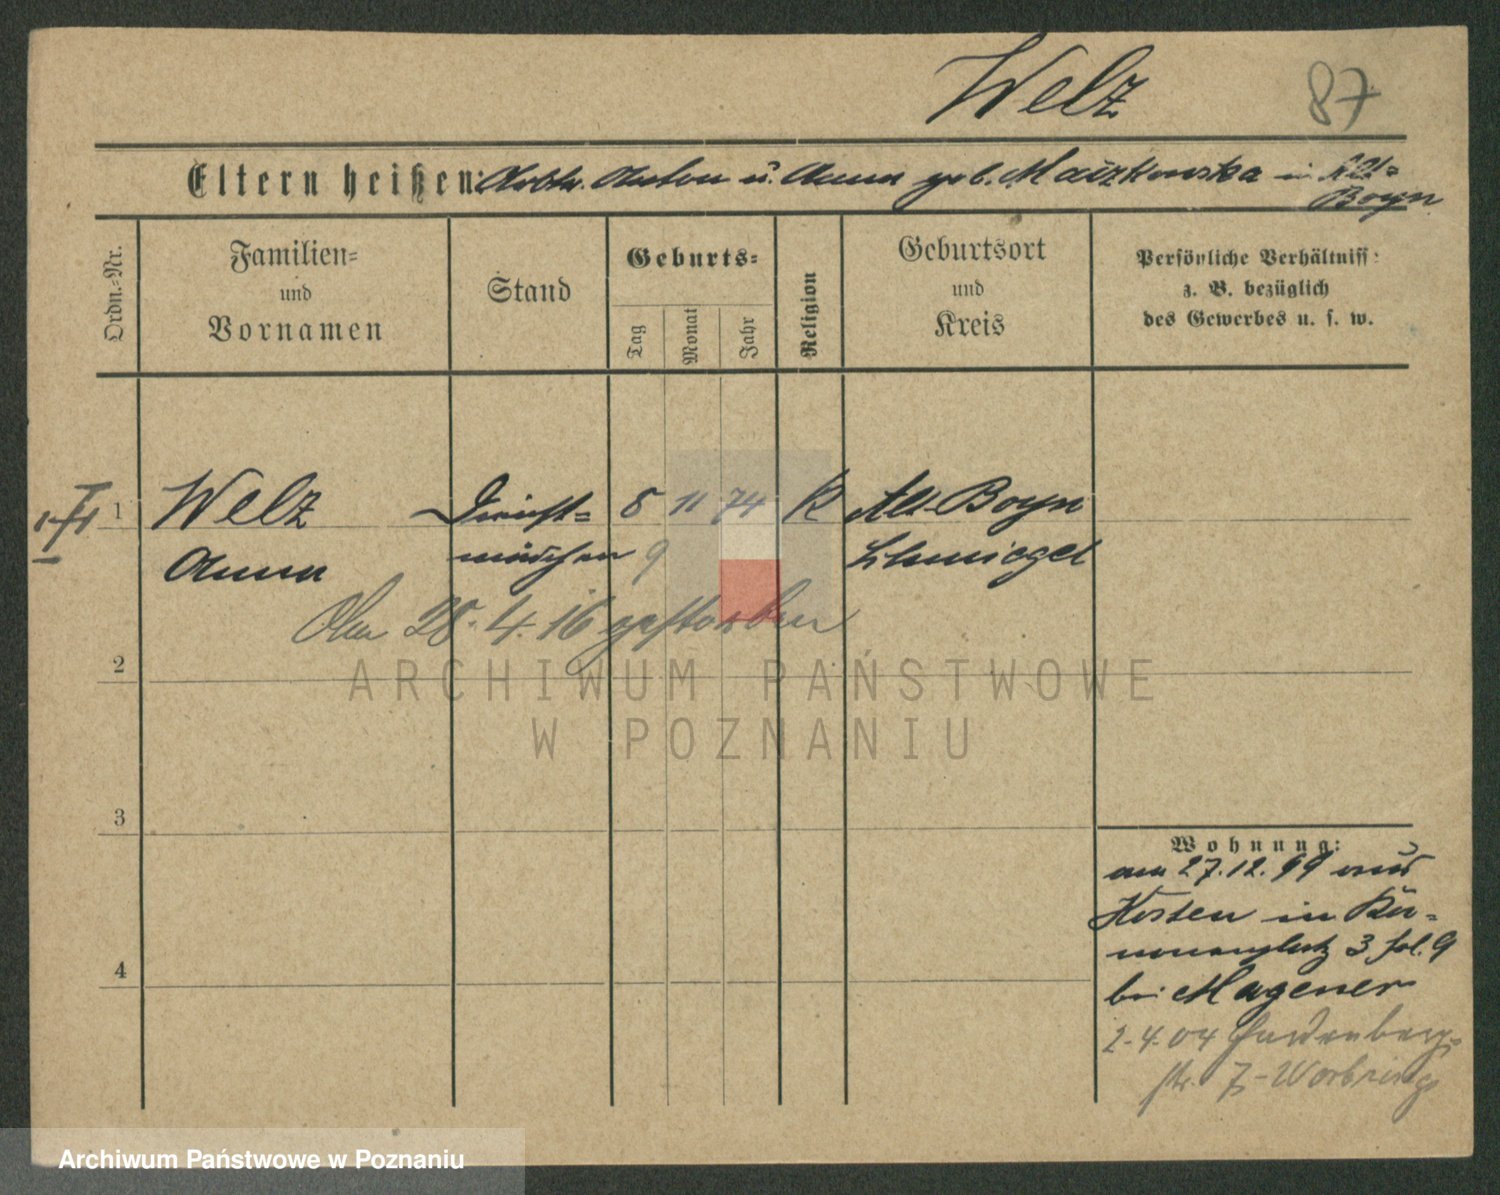 Welz 87
Eltern heißen: Arbtr. Anton u. Anna geb. Maiżkowska in Alt-
Boyn
Ordn.-Nr.
Familien-
und
Vornamen
Stand
Geburts-
Tag
Monat
Jahr
Religion
Geburtsort
und
Kreis
Persönliche Verhältniss:
z. B. bezüglich
des Gewerbes u. s. w.
1 Welz Dienst- 8 11 74 K Alt-Boyn
Anna mädchen 9 Schmiegel
Am 28.4.16 gestorben
2
ARCHIWUM PAŃSTWOWE
W POZNANIU
3
4
Wohnung:
am 27.12.99 aus
Kosten in
3 fol. 9
bei Wagener
2.4.04 Hardenberg-
str. 7-Worbrings
Archiwum Państwowe w Poznaniu